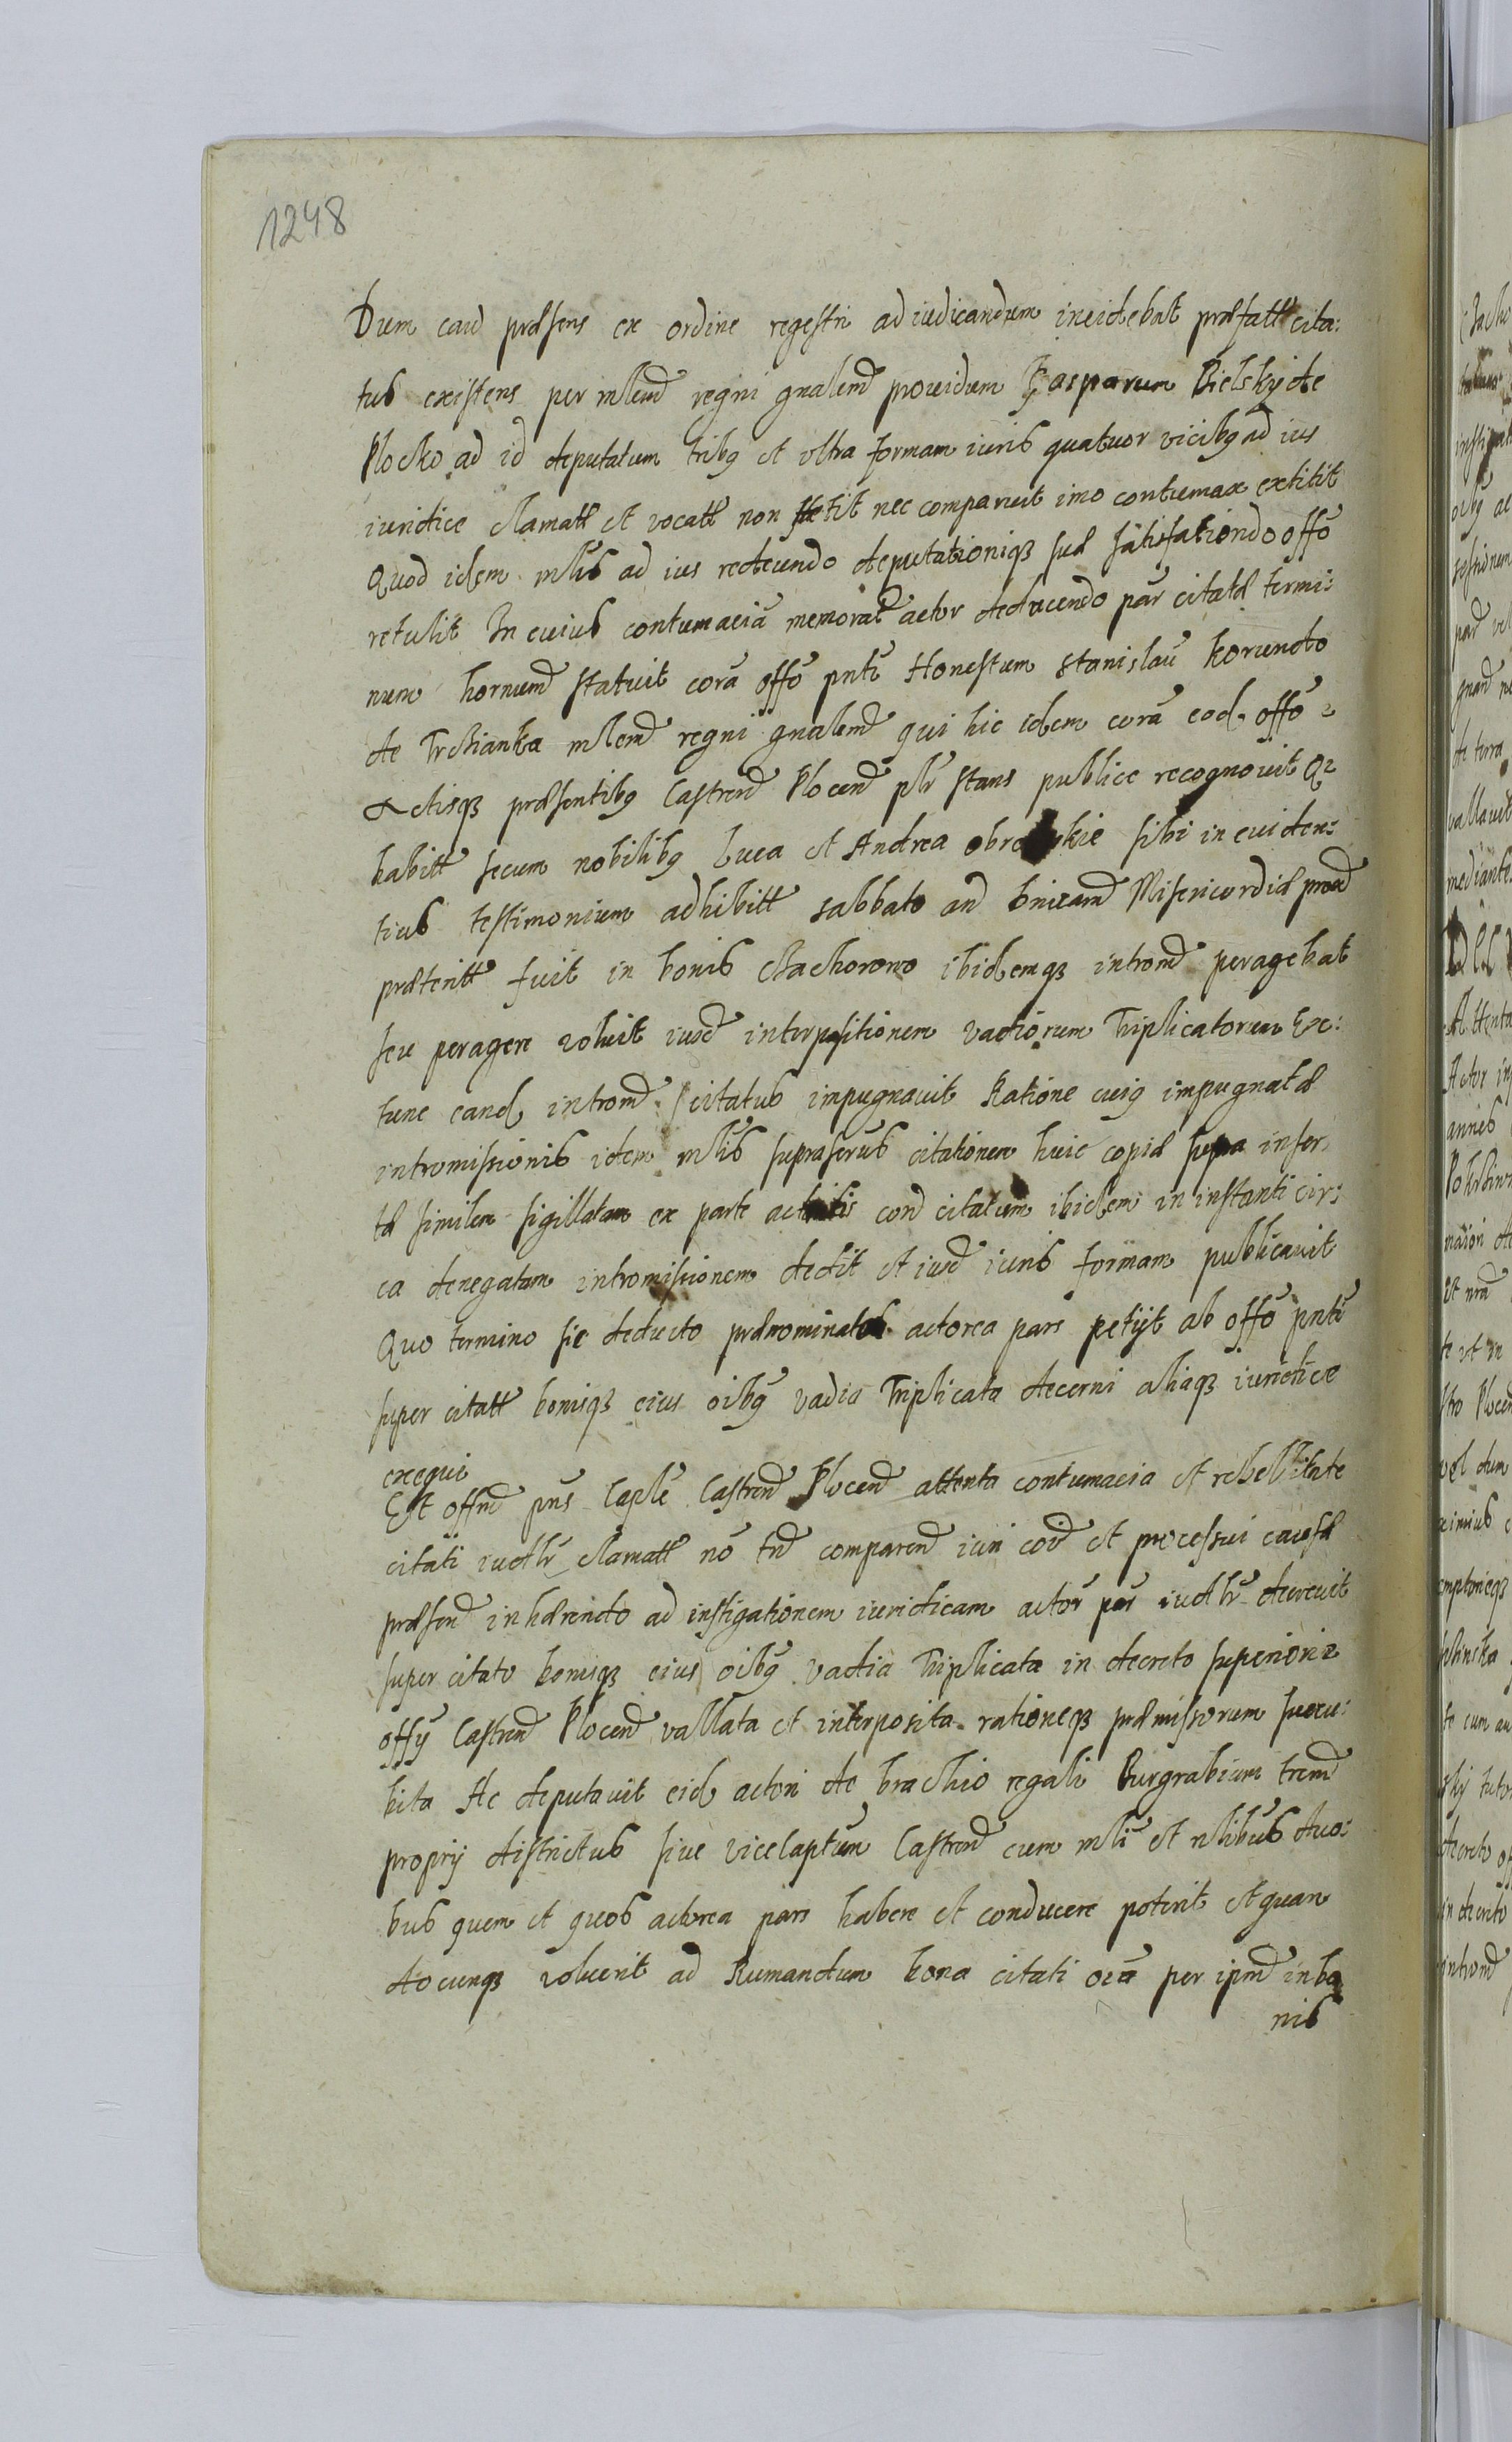 1248
Dum caūa præsens ex ordine regestri ad iudicandum incidebat præfatt cita:
tus existens per mlem regni gnalem prouidum Gasparum Bielsky de
Plocko ad id deputatum tribq et vltra formam iuris quatuor vicibq ad ius
iuridice clamatt et vocatt non stetit nec comparuit imo contumax extitit
Quod idem mlis ad ius redeundo deputationiqz suæ satisfaciendo offo
retulit In cuius contumaciã memorat actor deducendo par citatæ termi:
num hornum statuit corã offõ pnti Honestum Stanislaũ Korundo
de Trzcianka mlem regni gnalem qui hic idem corã eod offõ
Actisqz præsentibq Castren Plocen plr stans publice recognouit Qz
habitt secum nobilibq Luca et Andrea sibi in euiden:
tius testimonium adhibitt sabbato an Dnicam Misericordiæ prox
præteritt fuit in bonis Chachorowo ibidemqz introm peragebat
seu peragere voluit iuxta interpositionem vadiorum Triplicatorum Ex:
tunc eand introm citatus impugnauit Ratione cuiq impugnatæ
intromissionis idem mlis suprascrus citationem huic copiæ supra inser,
tæ similem sigillatam ex parte con citatum ibidem in instanti cir:
ca denegatam intromissionem dedit et iuxta iuris formam publicauit
Quo termino sic deducto prænominatus actorea pars petijt ab offõ pnti
super citatt bonisqz eius oibq vadia Triplicata decerni aliaqz iuridice
exequi
Et offm pns Caple Castren Plocen attenta contumacia et rebellitate
citati iudlr clamatt nõ tn comparen iuri coi et processui causæ
præsen inhærendo ad instigationem iuridicam actor par iudlr decreuit
super citato bonisqz eius oibq vadia Triplicata in decreto superiori
offy Castren Plocen vallata et interposita rationeqz præmissorum succu:
bita Ac deputauit eid actori de brachio regali Burgrabium trem
proprij districtus siue viceCaptum Castren cum mli et nlibus duo:
bus quem et quos actorea pars habere et conducere poterit et quan
docunqz voluerit ad Rumandum bona citati oia per ipm in bo
nis